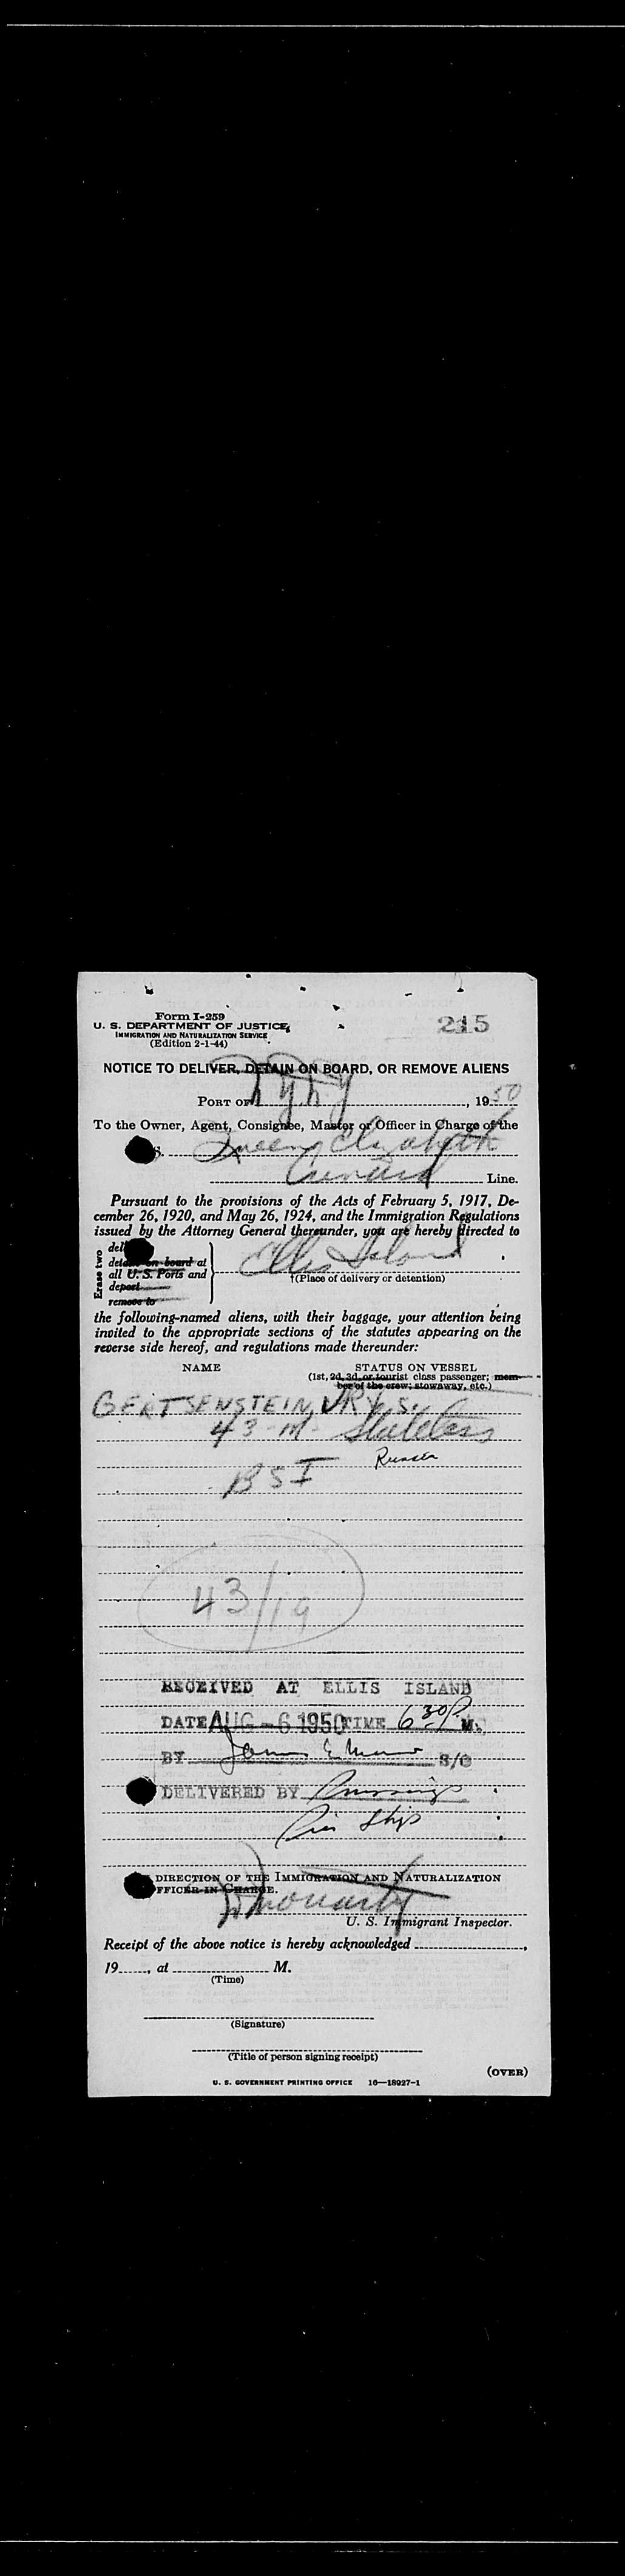 Form I-259
U. S. DEPARTMENT OF JUSTICE
IMMIGRATION AND NATURALIZATION SERVICE
(Edition 2-1-44)
215
NOTICE TO DELIVER, DETAIN ON BOARD, OR REMOVE ALIENS
PORT OF NYNY, 1950
To the Owner, Agent, Consignee, Master or Officer in Charge of the
S. Queen Elizabeth
Cunard Line.
Pursuant to the provisions of the Acts of February 5, 1917, De-
cember 26, 1920, and May 26, 1924, and the Immigration Regulations
issued by the Attorney General thereunder, you are hereby directed to
Erase two
del
detain on board at
all U. S. Ports and
deport
remove to
Ellis Island
†(Place of delivery or detention)
the following-named aliens, with their baggage, your attention being
invited to the appropriate sections of the statutes appearing on the
reverse side hereof, and regulations made thereunder:
NAME STATUS ON VESSEL
(1st, 2d, 3d, or tourist class passenger; mem-
ber of the crew; stowaway, etc.)
GERTSENSTEIN, URY S.
43-M- Stateless
Russia
BSI
43/19
RECEIVED AT ELLIS ISLAND
DATE AUG -6 1950 TIME 6 30 P M.
BY James S/O
DELIVERED BY
Pier Ship
DIRECTION OF THE IMMIGRATION AND NATURALIZATION
FFICER IN CHARGE.
U. S. Immigrant Inspector.
Receipt of the above notice is hereby acknowledged ,
19 , at M.
(Time)
(Signature)
(Title of person signing receipt)
(OVER)
U. S. GOVERNMENT PRINTING OFFICE 16—18927-1